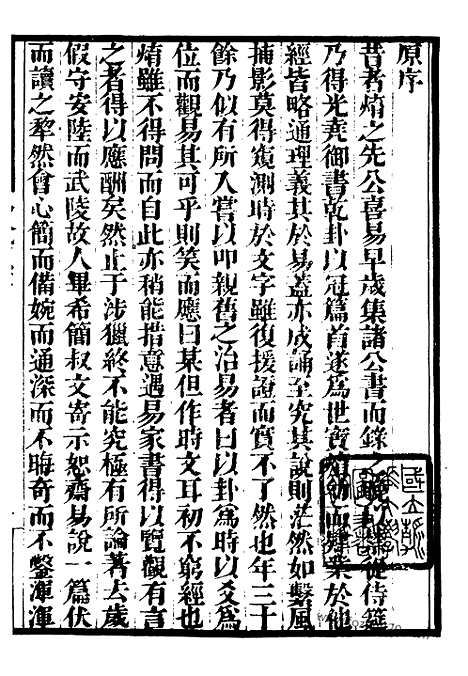 原序
昔者焴之先公喜易早歲集諸公書而錄之從侍
乃得光堯御書乾卦以冠篇首遂爲世寶幼而肄業於他
經皆略通理義其於易蓋亦成誦至究其說則茫然如繫風
捕影莫得窺測時於文字雖復援證而實不了然也年三十
餘乃似有所入嘗以叩親舊之治易者曰以卦爲時以爻爲
位而觀易其可乎則笑而應曰某但作時文耳初不窮經也
焴雖不得問而自此亦稍能措意遇易家書得以覽觀有言
之者得以應酬矣然止于涉獵終不能究極有所論著去歲
假守安陸而武陵故人畢希簡叔文寄示恕齋易說一篇伏
而讀之犂然會心簡而備婉而通深而不晦奇而不鑿渾渾